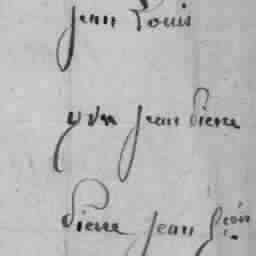 jean Louis
yvn jean pierre
Pierre jean